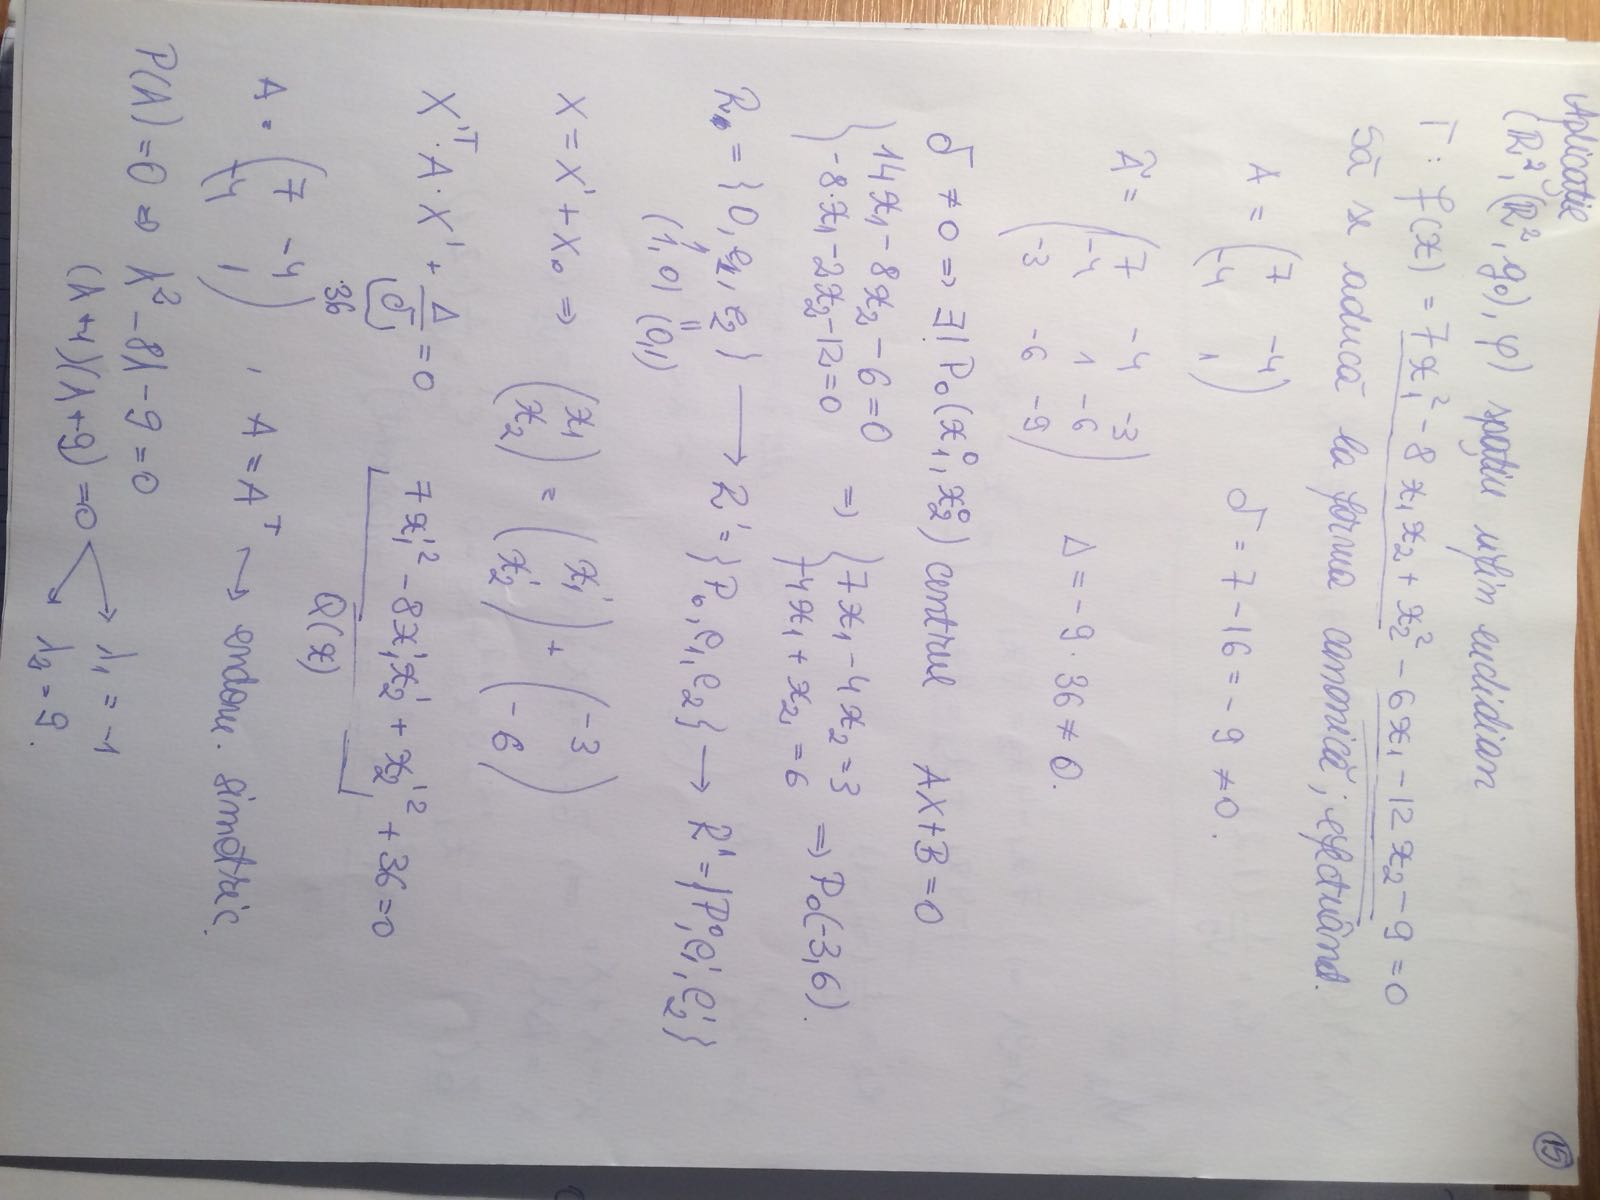 15
Aplicație
(R², (R², g₀), φ) spațiu afin euclidian
Γ: f(x) = 7x₁² - 8x₁x₂ + x₂² - 6x₁ - 12x₂ - 9 = 0
Să se aducă la forma canonică, efectuând.
A = (7 -4
-4 1) δ = 7 - 16 = -9 ≠ 0.
Ã = (7 -4 -3
-4 1 -6
-3 -6 -9) Δ = -9 · 36 ≠ 0.
δ ≠ 0 ⇒ ∃! P₀(x₁⁰, x₂⁰) centrul AX+B=0
{14x₁ - 8x₂ - 6 = 0
-8x₁ - 2x₂ - 12 = 0 ⇒ {7x₁ - 4x₂ = 3
-4x₁ + x₂ = 6 ⇒ P₀(-3, 6).
R = {0, e₁, e₂} → R' = {P₀, e₁, e₂} → R'' = {P₀, e₁', e₂'}
(1, 0) (0,1)
X = X' + X₀ ⇒ (x₁
x₂) = (x₁'
x₂') + (-3
-6)
X'ᵀ · A · X' + Δ/δ = 0 7x₁'² - 8x₁'x₂' + x₂'² + 36 = 0
36 Q(x)
A = (7 -4
-4 1), A = Aᵀ → endom. simetric.
P(λ) = 0 ⇒ λ² - 8λ - 9 = 0
(λ+1)(λ+9) = 0 λ₁ = -1
λ₂ = 9.